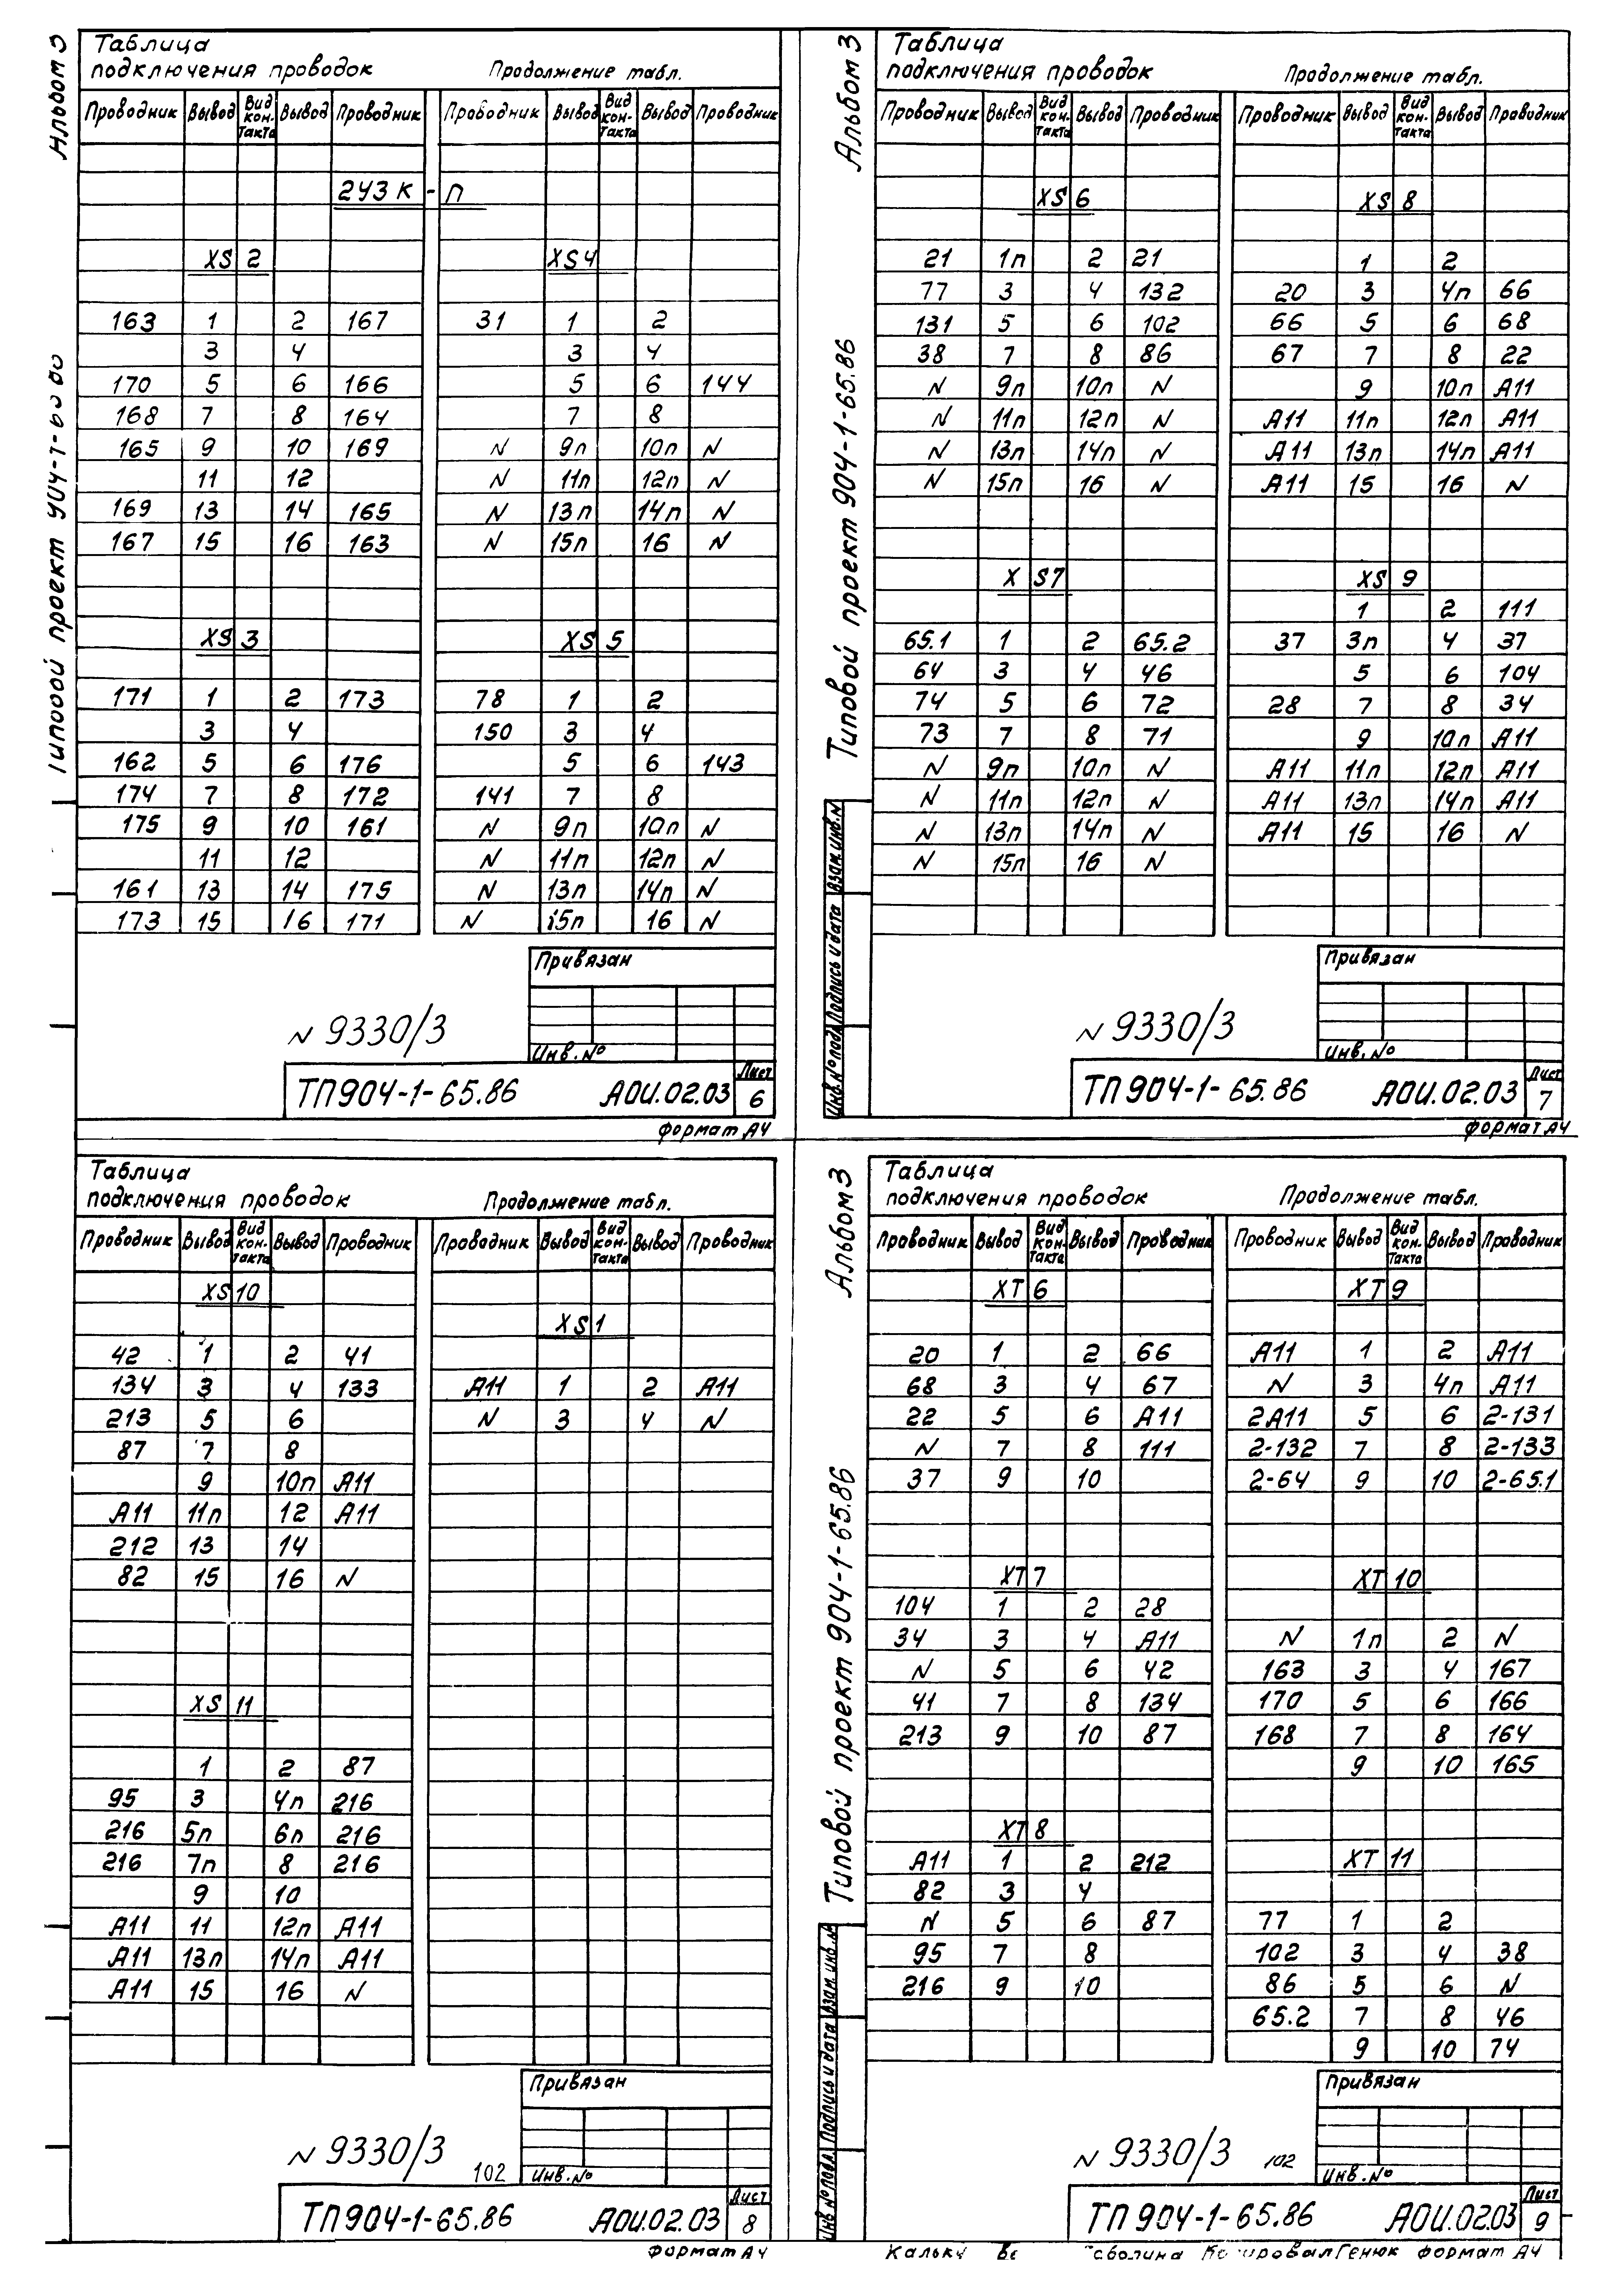 Альбом 3
Типовой проект 904-1-65.86
Таблица
подключения проводок
Продолжение табл.
Проводник Вывод Вид кон-такта Вывод Проводник Проводник Вывод Вид кон-такта Вывод Проводник
2УЗК-П
XS 2 XS 4
163 1 2 167 31 1 2
3 4 3 4
170 5 6 166 5 6 144
168 7 8 164 7 8
165 9 10 169 N 9п 10п N
11 12 N 11п 12п N
169 13 14 165 N 13п 14п N
167 15 16 163 N 15п 16 N
XS 3 XS 5
171 1 2 173 78 1 2
3 4 150 3 4
162 5 6 176 5 6 143
174 7 8 172 141 7 8
175 9 10 161 N 9п 10п N
11 12 N 11п 12п N
161 13 14 175 N 13п 14п N
173 15 16 171 N 15п 16 N
Привязан
N 9330/3
Инв. №
ТП904-1-65.86 АОИ.02.03 Лист 6
формат А4
Альбом 3
Типовой проект 904-1-65.86
Таблица
подключения проводок
Продолжение табл.
Проводник Вывод Вид кон-такта Вывод Проводник Проводник Вывод Вид кон-такта Вывод Проводник
XS 6 XS 8
21 1п 2 21 1 2
77 3 4 132 20 3 4п 66
131 5 6 102 66 5 6 68
38 7 8 86 67 7 8 22
N 9п 10п N 9 10п А11
N 11п 12п N А11 11п 12п А11
N 13п 14п N А11 13п 14п А11
N 15п 16 N А11 15 16 N
XS7 XS 9
1 2 111
65.1 1 2 65.2 37 3п 4 37
64 3 4 46 5 6 104
74 5 6 72 28 7 8 34
73 7 8 71 9 10п А11
N 9п 10п N А11 11п 12п А11
N 11п 12п N А11 13п 14п А11
N 13п 14п N А11 15 16 N
N 15п 16 N
Взам. инв. N
Подпись и дата
Инв. № подл.
Привязан
N 9330/3
Инв. №
ТП904-1-65.86 АОИ.02.03 Лист 7
формат А4
Таблица
подключения проводок
Продолжение табл.
Проводник Вывод Вид кон-такта Вывод Проводник Проводник Вывод Вид кон-такта Вывод Проводник
XS 10
XS 1
42 1 2 41
134 3 4 133 А11 1 2 А11
213 5 6 N 3 4 N
87 7 8
9 10п А11
А11 11п 12 А11
212 13 14
82 15 16 N
XS 11
1 2 87
95 3 4п 216
216 5п 6п 216
216 7п 8 216
9 10
А11 11 12п А11
А11 13п 14п А11
А11 15 16 N
Привязан
N 9330/3
102
Инв. №
ТП904-1-65.86 АОИ.02.03 Лист 8
формат А4
Альбом 3
Типовой проект 904-1-65.86
Таблица
подключения проводок
Продолжение табл.
Проводник Вывод Вид кон-такта Вывод Проводник Проводник Вывод Вид кон-такта Вывод Проводник
XT 6 XT 9
20 1 2 66 А11 1 2 А11
68 3 4 67 N 3 4п А11
22 5 6 А11 2А11 5 6 2-131
N 7 8 111 2-132 7 8 2-133
37 9 10 2-64 9 10 2-65.1
XT 7 XT 10
104 1 2 28
34 3 4 А11 N 1п 2 N
N 5 6 42 163 3 4 167
41 7 8 134 170 5 6 166
213 9 10 87 168 7 8 164
9 10 165
XT 8
А11 1 2 212 XT 11
82 3 4
N 5 6 87 77 1 2
95 7 8 102 3 4 38
216 9 10 86 5 6 N
65.2 7 8 46
9 10 74
Взам. инв. №
Подпись и дата
Инв № подл.
Привязан
N 9330/3
102
Инв. №
ТП904-1-65.86 АОИ.02.03 Лист 9
Копировал Генюк формат А4